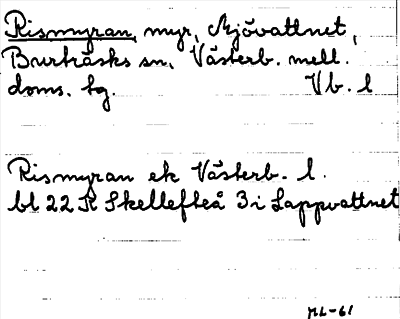 Rismyran, myr, Mjövattnet,
Burträsks sn, Västerb. mell.
doms. hg. Vb. l
Rismyran ek Västerb. l.
bl 22 K Skellefteå 3 i Lappvattnet
ML-61